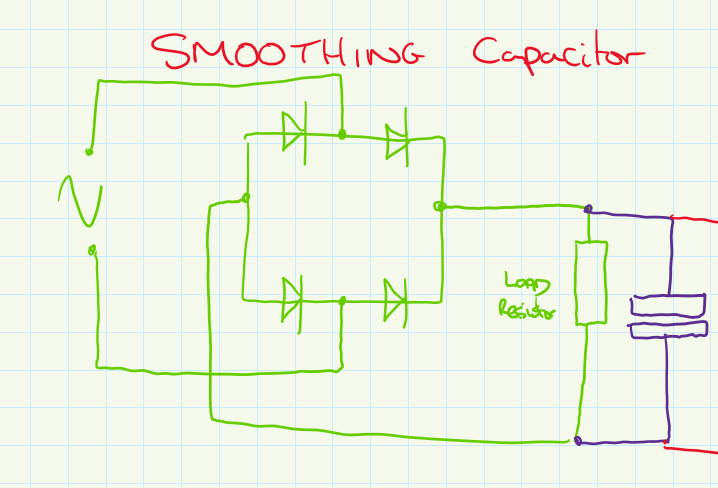 SMOOTHING Capacitor
LOAD
Resistor